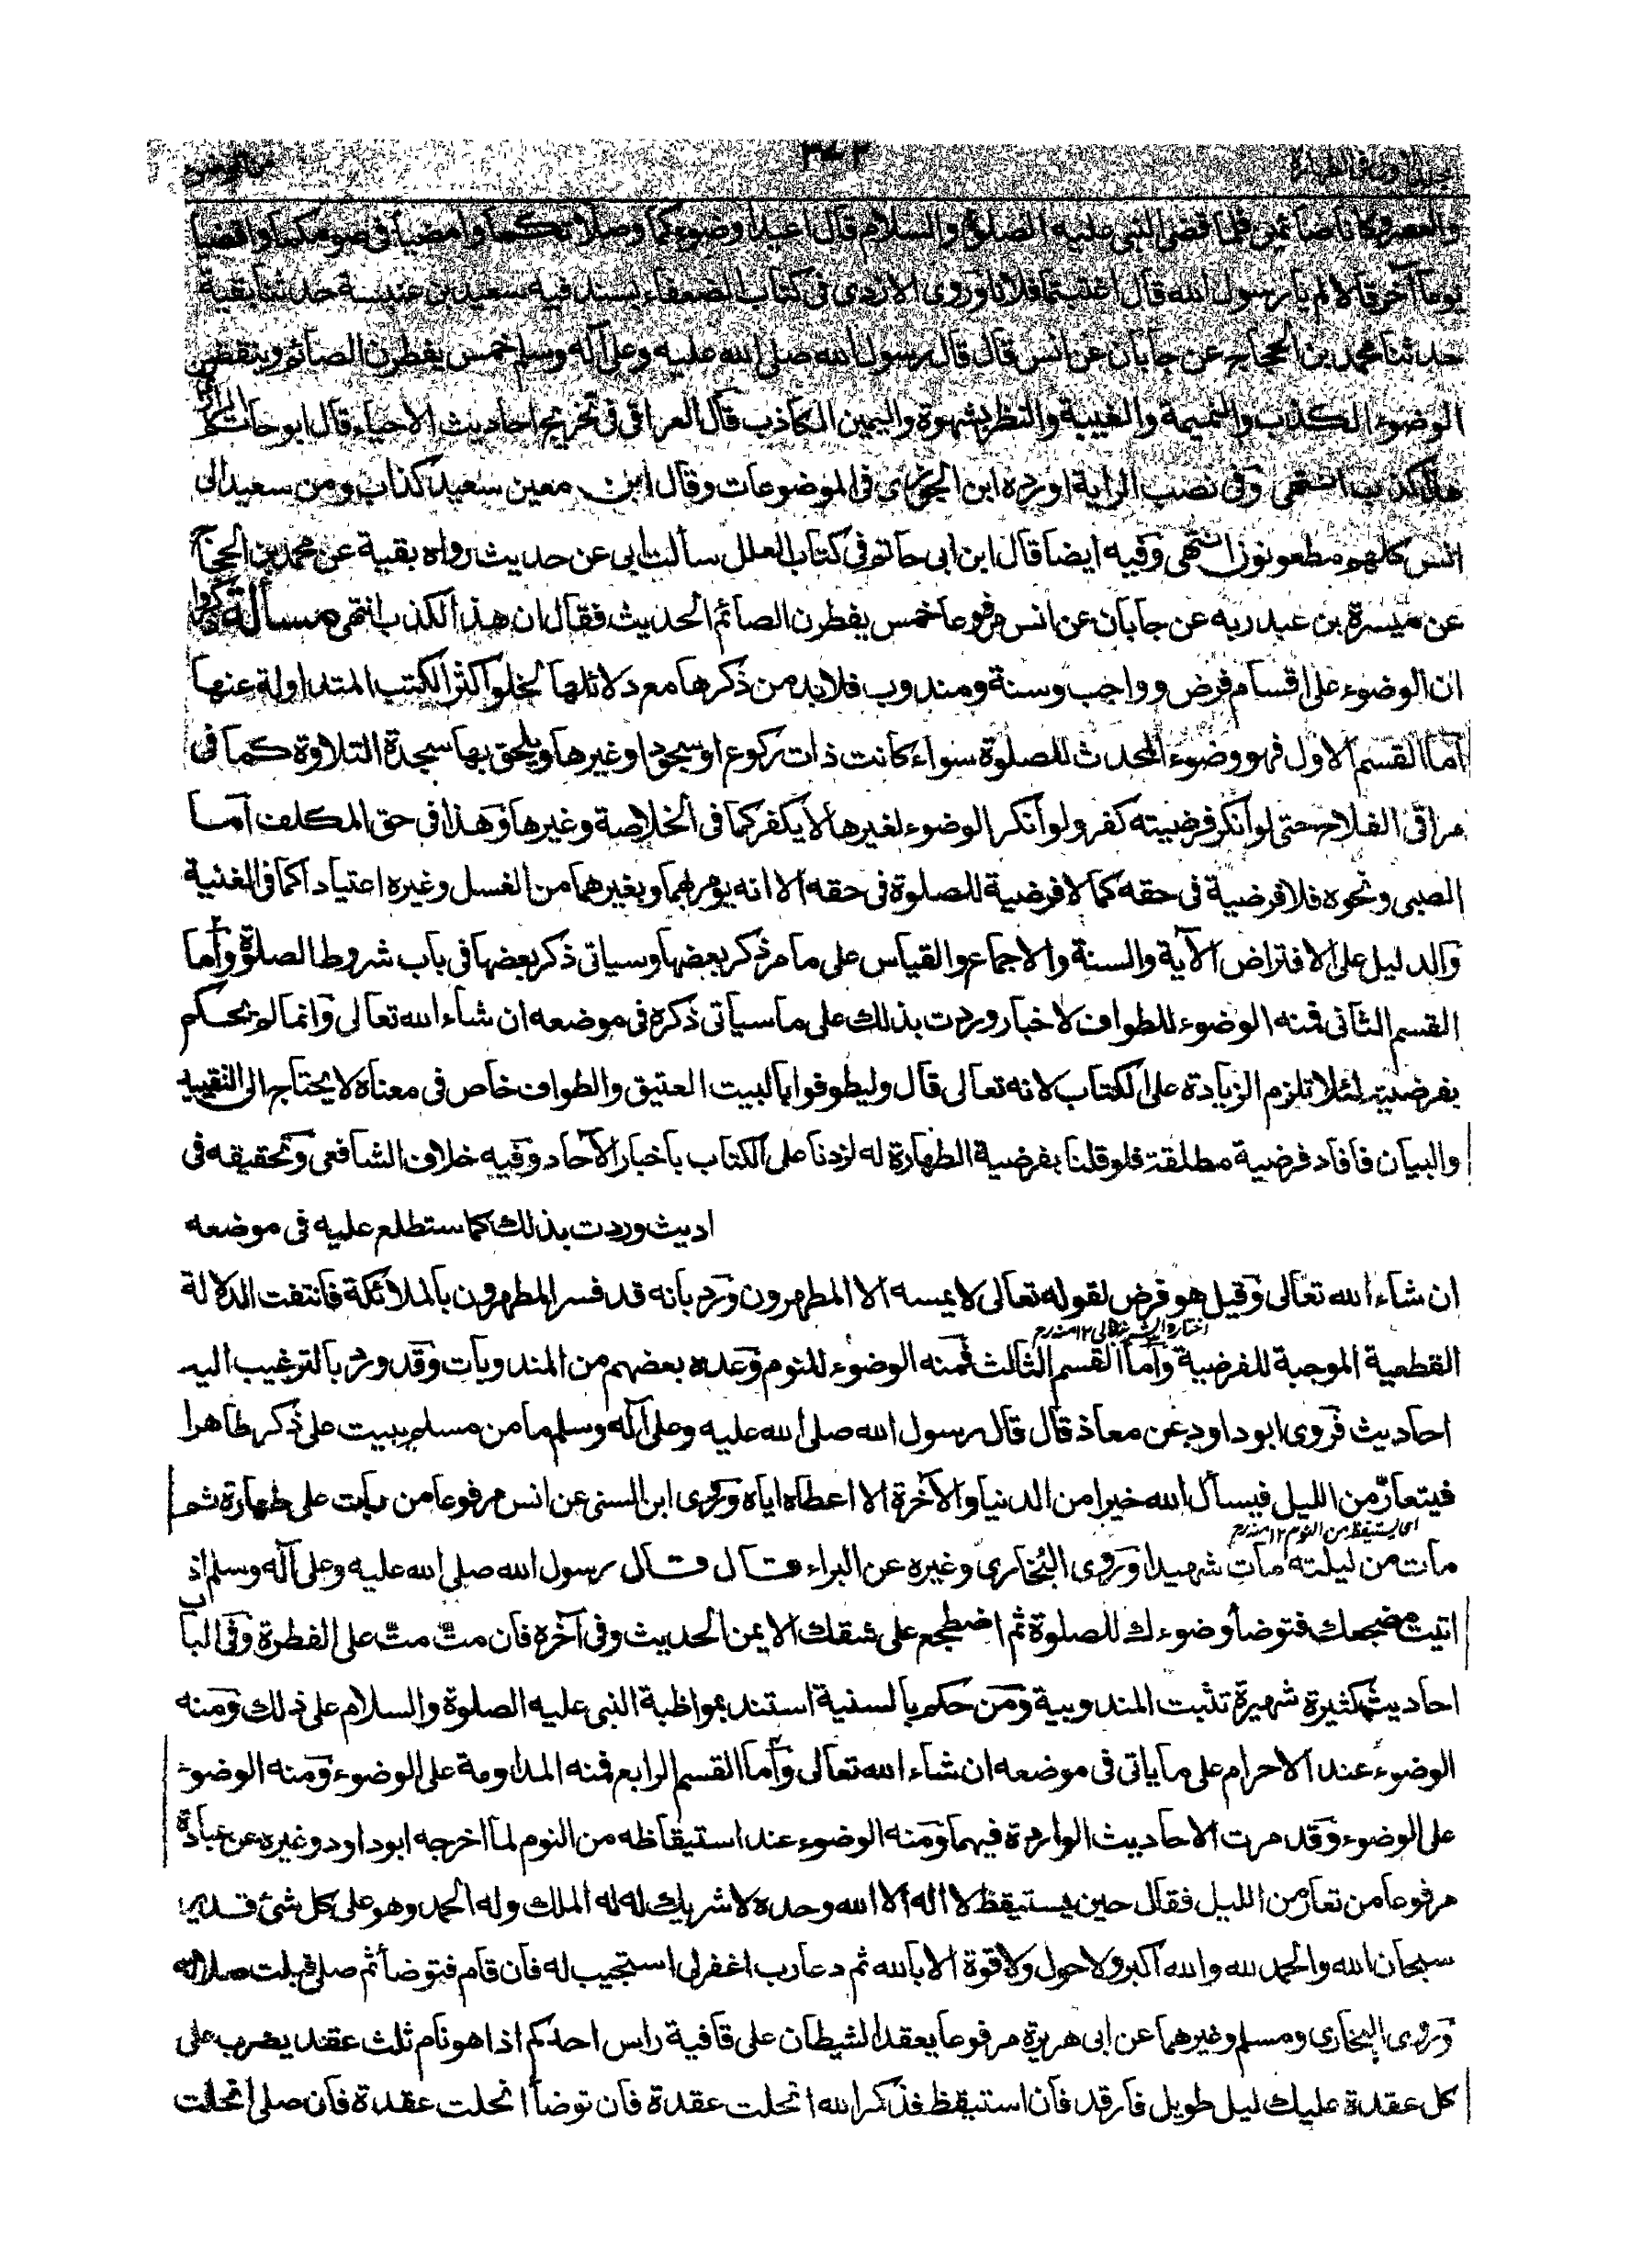 ٣٤٣
والعصر وكانا صائمين فلما قضى النبى عليه الصلوة والسلام قال اعيدا وضوءكما وصلاتكما وامضيا فى صومكما واقضيا
يوما آخر قالا لم يا رسول الله قال اغتبتما فلانا وروى الازدى فى كتاب الضعفاء بسند فيه سعيد بن عنبسة حدثنا بقية
حدثنا محمد بن الحجاج عن جابان عن انس قال قال رسول الله صلى الله عليه وعلى آله وسلم خمس يفطرن الصائم وينقضن
الوضوء الكذب والنميمة والغيبة والنظر بشهوة واليمين الكاذب قال العراقى فى تخريج احاديث الاحياء قال ابو حاتم
هذا كذب انتهى وفى نصب الراية اورده ابن الجوزى فى الموضوعات وقال ابن معين سعيد كذاب ومن سعيد الى
انس كلهم مطعونون انتهى وفيه ايضا قال ابن ابى حاتم فى كتاب العلل سألت ابى عن حديث رواه بقية عن محمد بن الحجاج
عن ميسرة بن عبد ربه عن جابان عن انس مرفوعا خمس يفطرن الصائم الحديث فقال ان هذا الكذب انتهى مسألة ذكروا
ان الوضوء على اقسام فرض وواجب وسنة ومندوب فلا بد من ذكرها مع دلائلها لخلو اكثر الكتب المتداولة عنها
اما القسم الاول فهو وضوء المحدث للصلوة سواء كانت ذات ركوع او سجود او غيرها ويلحق بها سجدة التلاوة كما فى
مراقى الفلاح حتى لو انكر فرضيته كفر ولو انكر الوضوء لغيرها لا يكفر كما فى الخلاصة وغيرها وهذا فى حق المكلف اما
الصبى ونحوه فلا فرضية فى حقه كما لا فرضية للصلوة فى حقه الا انه يومر بهما وبغيرهما من الغسل وغيره اعتيادا كما فى الغنية
والدليل على الافتراض الآية والسنة والاجماع والقياس على ما مر ذكر بعضها وسياتى ذكر بعضها فى باب شروط الصلوة واما
القسم الثانى فمنه الوضوء للطواف لاخبار وردت بذلك على ما سياتى ذكره فى موضعه ان شاء الله تعالى وانما لم نحكم
بفرضيته لئلا تلزم الزيادة على الكتاب لانه تعالى قال وليطوفوا بالبيت العتيق والطواف خاص فى معناه لا يحتاج الى التقييد
والبيان فافاد فرضية مطلقة فلو قلنا بفرضية الطهارة له لزدنا على الكتاب باخبار الآحاد وفيه خلاف الشافعى وتحقيقه فى
اديث وردت بذلك كما ستطلع عليه فى موضعه
ان شاء الله تعالى وقيل هو فرض لقوله تعالى لا يمسه الا المطهرون ورد بانه قد فسر المطهرون بالملائكة فانتفت الدلالة
اختاره الشرنبلالى ١٢ منه رح
القطعية الموجبة للفرضية واما القسم الثالث فمنه الوضوء للنوم وعده بعضهم من المندوبات وقد ورد بالترغيب اليه
احاديث فروى ابو داود عن معاذ قال قال رسول الله صلى الله عليه وعلى آله وسلم ما من مسلم يبيت على ذكر طاهرا
فيتعارّ من الليل فيسأل الله خيرا من الدنيا والآخرة الا اعطاه اياه وروى ابن السنى عن انس مرفوعا من بات على طهارة ثم
اى يستيقظ من النوم ١٢ منه رح
مات من ليلته مات شهيدا وروى البخارى وغيره عن البراء قال قال رسول الله صلى الله عليه وعلى آله وسلم اذا
اتيت مضجعك فتوضأ وضوءك للصلوة ثم اضطجع على شقك الايمن الحديث وفى آخره فان متّ متّ على الفطرة وفى الباب
احاديث كثيرة شهيرة تثبت المندوبية ومن حكم بالسنية استند بمواظبة النبى عليه الصلوة والسلام على ذلك ومنه
الوضوء عند الاحرام على ما ياتى فى موضعه ان شاء الله تعالى واما القسم الرابع فمنه المداومة على الوضوء ومنه الوضوء
على الوضوء وقد مرت الاحاديث الواردة فيهما ومنه الوضوء عند استيقاظه من النوم لما اخرجه ابو داود وغيره عن عبادة
مرفوعا من تعار من الليل فقال حين يستيقظ لا اله الا الله وحده لا شريك له له الملك وله الحمد وهو على كل شئ قدير
سبحان الله والحمد لله والله اكبر ولا حول ولا قوة الا بالله ثم دعا رب اغفر لى استجيب له فان قام فتوضأ ثم صلى قبلت صلاته
وروى البخارى ومسلم وغيرهما عن ابى هريرة مرفوعا يعقد الشيطان على قافية راس احدكم اذا هو نام ثلث عقد يضرب على
كل عقدة عليك ليل طويل فارقد فان استيقظ فذكر الله انحلت عقدة فان توضأ انحلت عقدة فان صلى انحلت